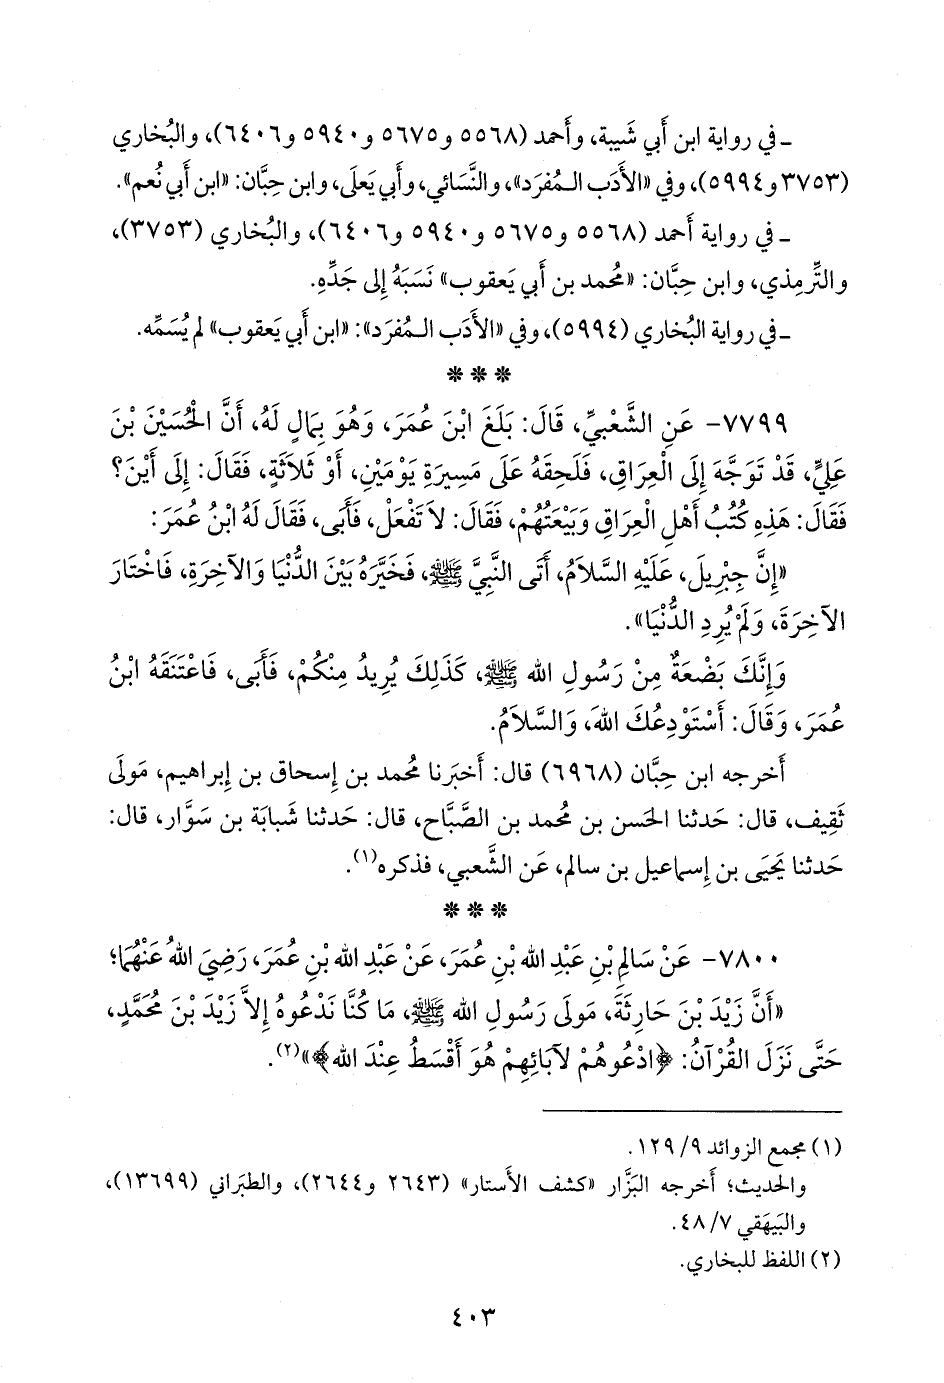 ـ في رواية ابن أَبي شَيبة، وأَحمد (٥٥٦٨ و٥٦٧٥ و٥٩٤٠ و٦٤٠٦)، والبُخاري
(٣٧٥٣ و٥٩٩٤)، وفي «الأَدَب الـمُفرَد»، والنَّسائي، وأَبي يَعلَى، وابن حِبَّان: «ابن أَبي نُعم».
ـ في رواية أَحمد (٥٥٦٨ و٥٦٧٥ و٥٩٤٠ و٦٤٠٦)، والبُخاري (٣٧٥٣)،
والتِّرمِذي، وابن حِبَّان: «مُحمد بن أَبي يَعقوب» نَسَبَهُ إِلى جَدِّهِ.
ـ في رواية البُخاري (٥٩٩٤)، وفي «الأَدَب الـمُفرَد»: «ابن أَبي يَعقوب» لم يُسَمِّه.
* * *
٧٧٩٩- عَنِ الشَّعْبِيِّ، قَالَ: بَلَغَ ابْنَ عُمَرَ، وَهُوَ بِمَالٍ لَهُ، أَنَّ الْحُسَيْنَ بْنَ
عَلِيٍّ، قَدْ تَوَجَّهَ إِلَى الْعِرَاقِ، فَلَحِقَهُ عَلَى مَسِيرَةِ يَوْمَيْنِ، أَوْ ثَلَاثَةٍ، فَقَالَ: إِلَى أَيْنَ؟
فَقَالَ: هَذِهِ كُتُبُ أَهْلِ الْعِرَاقِ وَبَيْعَتُهُمْ، فَقَالَ: لَا تَفْعَلْ، فَأَبَى، فَقَالَ لَهُ ابْنُ عُمَرَ:
«إِنَّ جِبْرِيلَ، عَلَيْهِ السَّلَامُ، أَتَى النَّبِيَّ ﷺ، فَخَيَّرَهُ بَيْنَ الدُّنْيَا وَالآخِرَةِ، فَاخْتَارَ
الآخِرَةَ، وَلَمْ يُرِدِ الدُّنْيَا».
وَإِنَّكَ بَضْعَةٌ مِنْ رَسُولِ الله ﷺ، كَذَلِكَ يُرِيدُ مِنْكُمْ، فَأَبَى، فَاعْتَنَقَهُ ابْنُ
عُمَرَ، وَقَالَ: أَسْتَوْدِعُكَ اللهَ، وَالسَّلَامُ.
أَخرجه ابن حِبَّان (٦٩٦٨) قال: أَخبَرنا مُحمد بن إِسحاق بن إِبراهيم، مَولَى
ثَقِيف، قال: حَدثنا الحَسن بن مُحمد بن الصَّبَّاح، قال: حَدثنا شَبابَة بن سَوَّار، قال:
حَدثنا يَحيَى بن إِسماعيل بن سالم، عَن الشَّعبي، فذكره(١).
* * *
٧٨٠٠- عَنْ سَالِمِ بْنِ عَبْدِ الله بْنِ عُمَرَ، عَنْ عَبْدِ الله بْنِ عُمَرَ، رَضِيَ اللهُ عَنْهُمَا؛
«أَنَّ زَيْدَ بْنَ حَارِثَةَ، مَوْلَى رَسُولِ الله ﷺ، مَا كُنَّا نَدْعُوهُ إِلَّا زَيْدَ بْنَ مُحَمَّدٍ،
حَتَّى نَزَلَ القُرْآنُ: ﴿ادْعُوهُمْ لآبَائِهِمْ هُوَ أَقْسَطُ عِنْدَ الله﴾»(٢).
(١) مجمع الزوائد ٩/ ١٢٩.
والحديث؛ أَخرجه البَزَّار «كشف الأَستار» (٢٦٤٣ و٢٦٤٤)، والطبَراني (١٣٦٩٩)،
والبَيهَقي ٧/ ٤٨.
(٢) اللفظ للبخاري.
٤٠٣